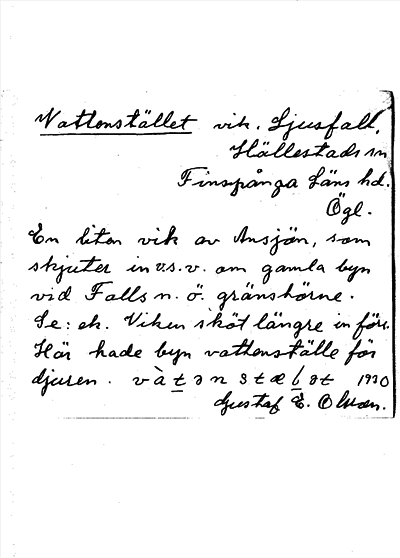 Vattenstället vik. Ljusfall,
Hällestads sn
Finspånga Läns hd.
Ögl.
En liten vik av Ansjön, som
skjuter in v.s.v. om gamla byn
vid Falls n. ö. gränshörne.
Se: ek. Viken sköt längre in förr.
Här hade byn vattenställe för
djuren. 1930
Gustaf E. Olson.